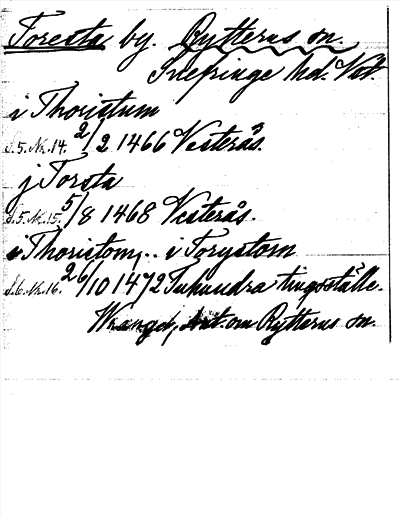 Foresta by. Rytterns sn.
Snefringe hd. Vstm.
i Thoristum
S.5.Nr.14. 2/2 1466 Vesterås.
j Torsta
S.5.Nr.15. 5/8 1468 Vesterås.
i Thoristom, .. i Torystom
S.6.Nr.16. 26/10 1472 Tuhundra tingsställe.
Wrangel, Ant. om Rytterns sn.